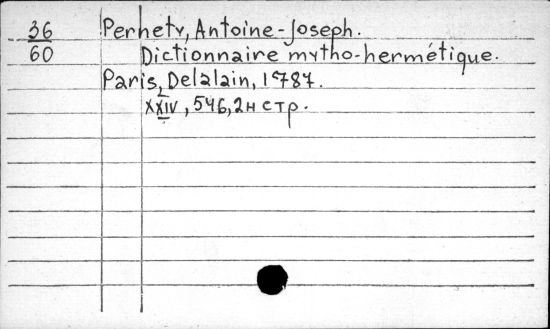 36 Perhety, Antoine-Joseph.
60 Dictionnaire mytho-hermétique.
Paris, Delalain, 1787.
XXIV, 546, 2н стр.